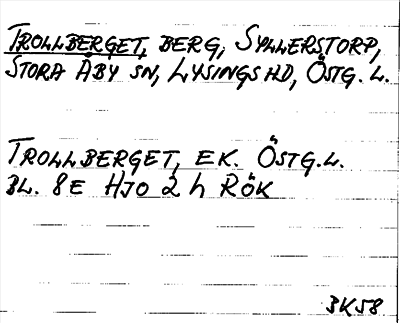 TROLLBERGET, BERG, SYLLERSTORP,
STORA ÅBY SN, LYSINGS HD, ÖSTG. L.
TROLLBERGET, EK. ÖSTG. L.
BL. 8E HJO 2 h RÖK
BK58